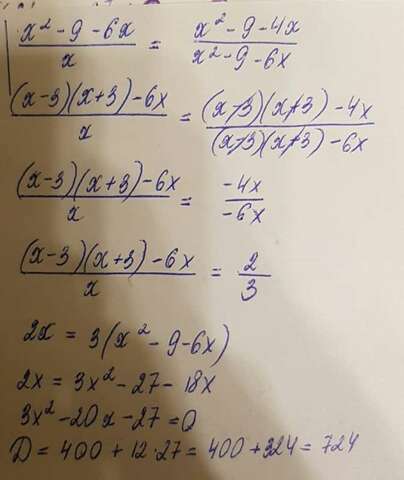 (x² - 9 - 6x)/x = (x² - 9 - 4x)/(x² - 9 - 6x)
((x-3)(x+3) - 6x)/x = ((x-3)(x+3) - 4x)/((x-3)(x+3) - 6x)
((x-3)(x+3) - 6x)/x = (-4x)/(-6x)
((x-3)(x+3) - 6x)/x = 2/3
2x = 3(x² - 9 - 6x)
2x = 3x² - 27 - 18x
3x² - 20x - 27 = 0
D = 400 + 12·27 = 400 + 324 = 724